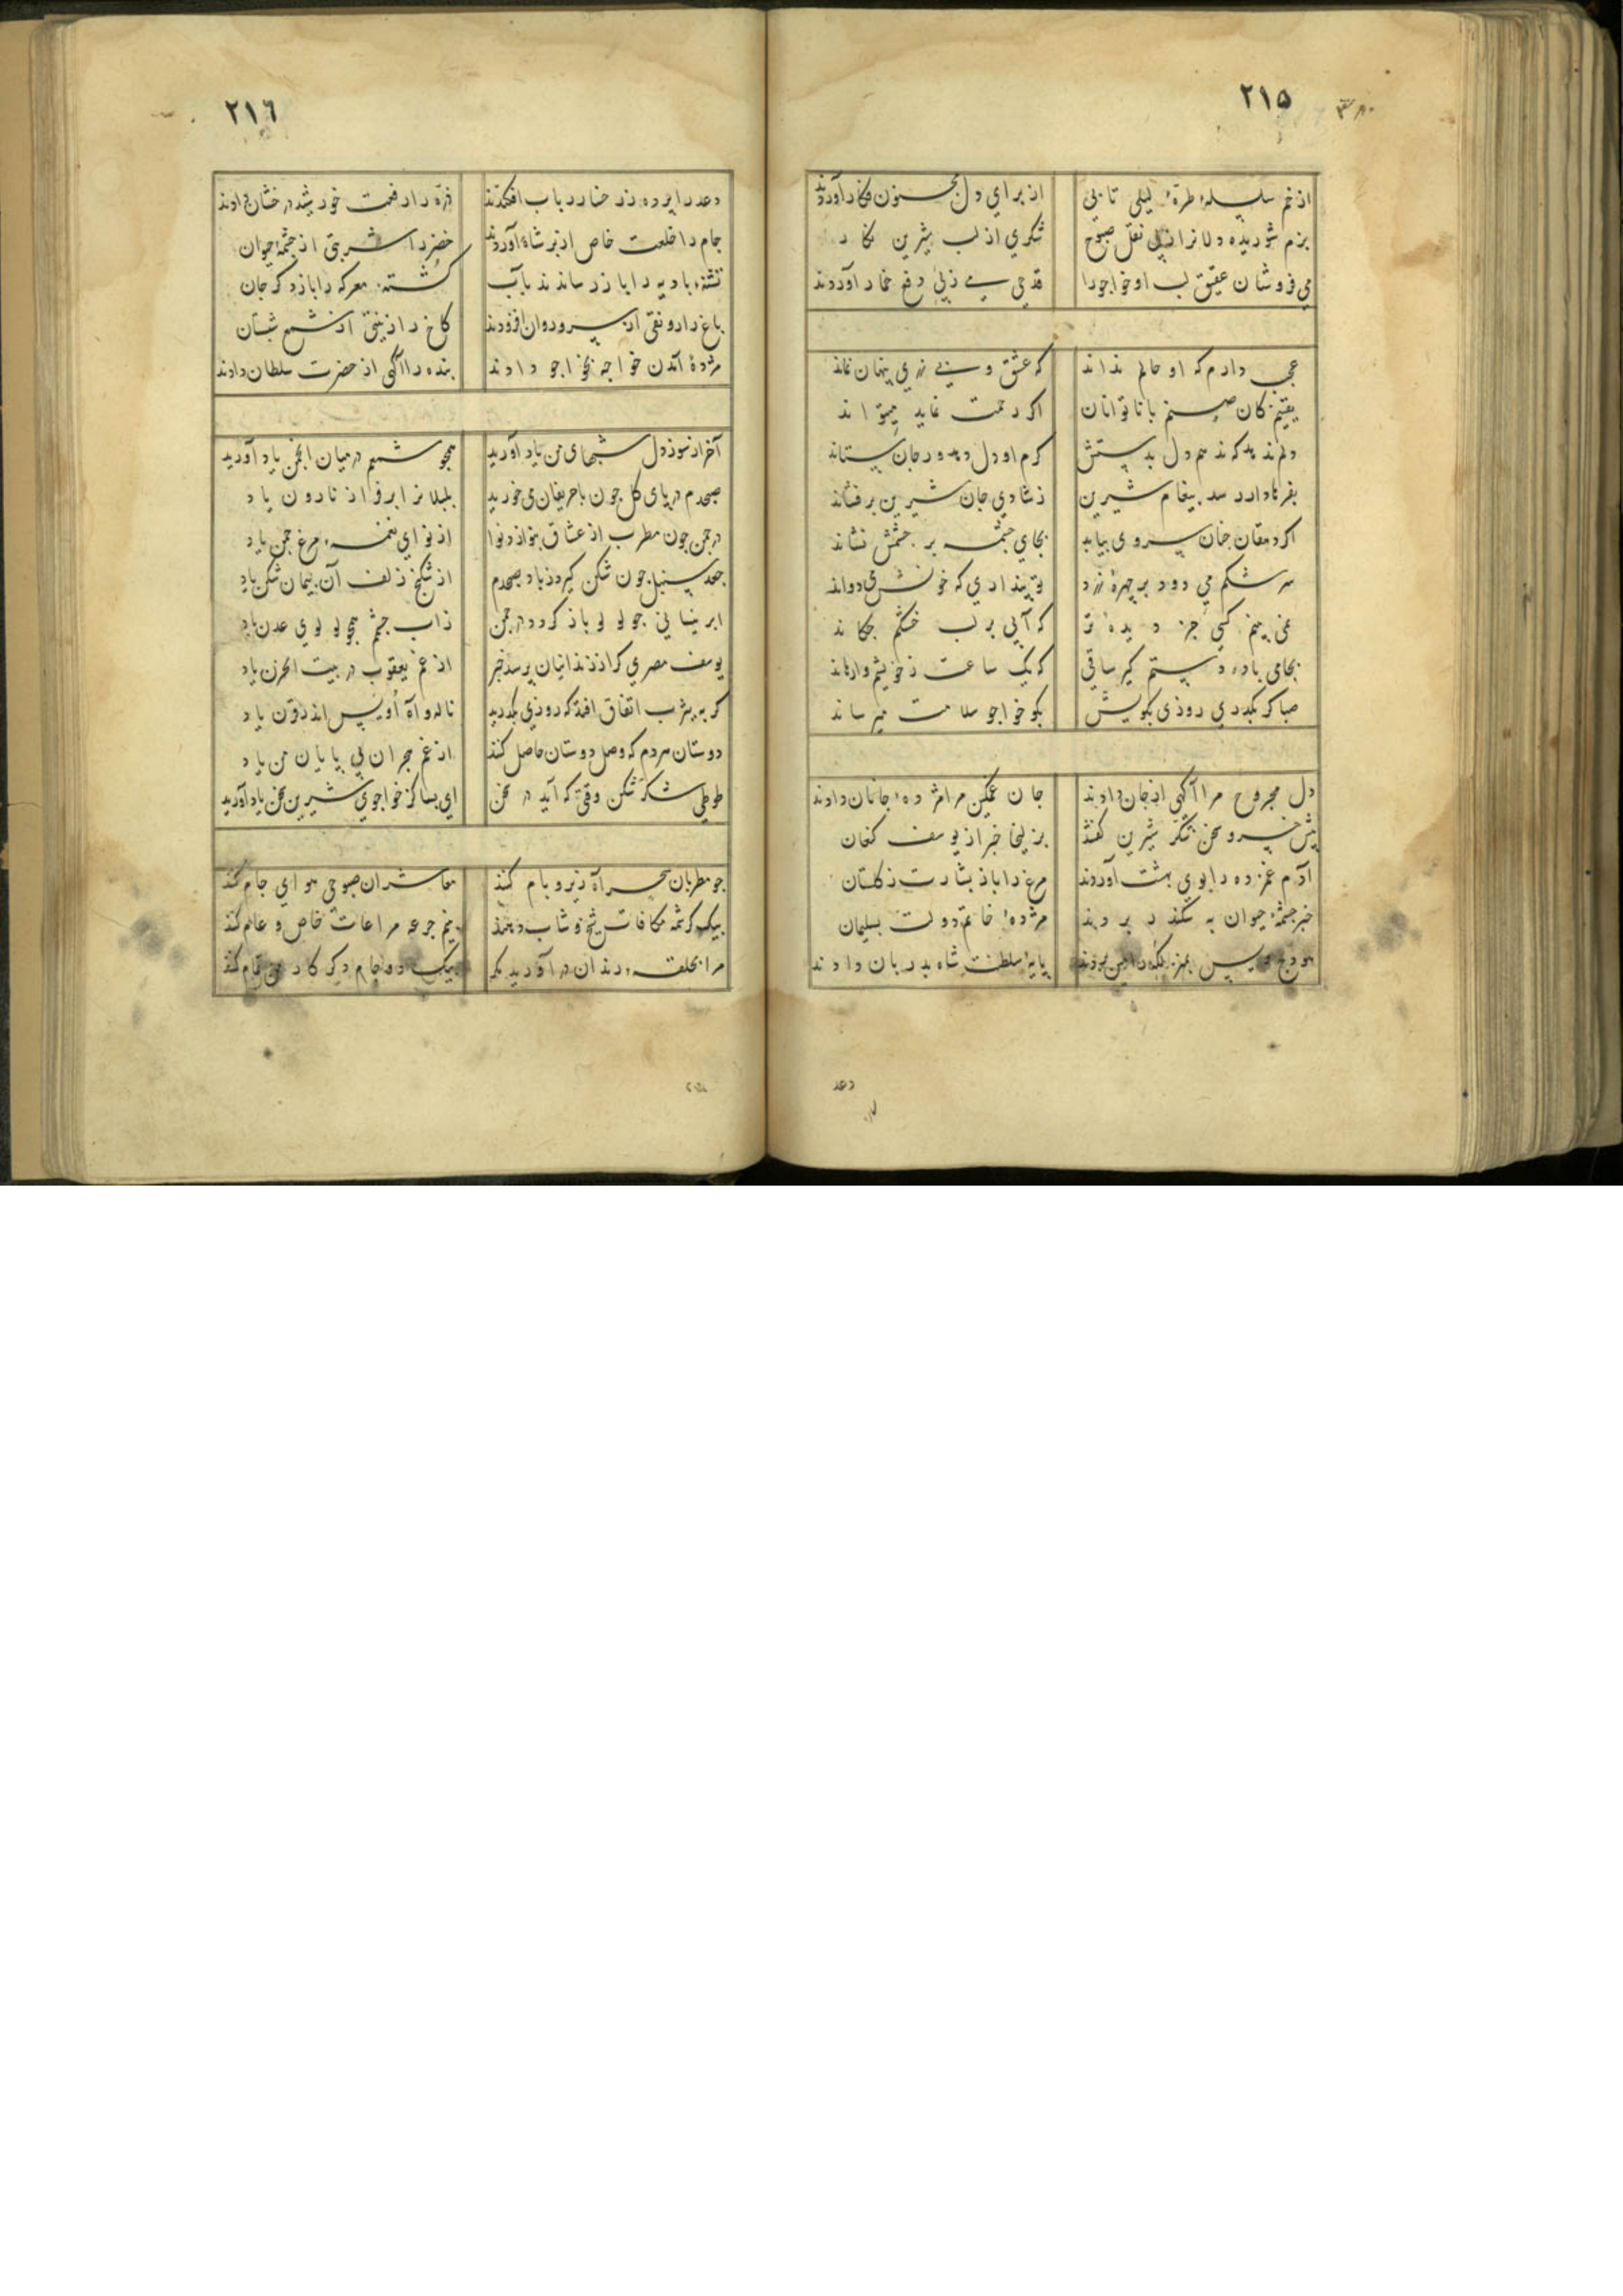 ٢١٥
از خم سلسلهٔ طرهٔ لیلی تابی از برای دل مجنون فکار آوردند
بزم شوریده دلانرا از پی نقل صبوح شکری از لب شیرین نکار
می فروشان عقیق لب او خواجو را قدحی می ز پی دفع خمار آوردند
عجب دارم که او حالم نداند که عشق و بی زری پنهان نماند
یقینم کان صنم با ناتوانان اکر رحمت نماید میتواند
دلم ندهد که ندهم دل بدستش کرم او دل دهد ور جان ستاند
بفرهاد ار رسد پیغام شیرین ز شادی جان شیرین برفشاند
اکر دهقان چنان سروی بیابد بجای چشمه بر چشمش نشاند
سرشکم می دود بر چهرهٔ زرد تو پنداری که خونش می دواند
نمی بینم کسی جز دیدهٔ تر که آبی بر لب خشکم چکاند
بجامی باده دستم کیر ساقی که یک ساعت ز خویشم وارهاند
صبا کر بکذری روزی بکویش بکو خواجو سلامت میرساند
دل مجروح مرا آکهی از جان دادند جان غمکین مرا مژدهٔ جانان دادند
پیش خسرو سخن شکر شیرین کفتند بزلیخا خبر از یوسف کنعان
آدم غمزده را بوی بهشت آوردند مرغ را باز بشارت ز کلستان
خبر چشمهٔ حیوان به سکندر بردند مژدهٔ خاتم دولت بسلیمان
پایهٔ سلطنت شاه بدربان دادند
دعد
٢١٦
دعد را پرده ز رخسار رباب افکندند ذره را رفعت خورشید درخشان دادند
جام را خلعت خاص از بر شاه آوردند خضر را شربتی از چشمهٔ حیوان
تشنهٔ بادیه را باز رساندند بآب کشتهٔ معرکه را باز دکر جان
باغ را رونقی از سرو روان افزودند کاخ را زینتی از شمع شبستان
مژدهٔ آمدن خواجه بخواجو دادند بنده را آکهی از حضرت سلطان دادند
آخر از سوز دل شبهای من یاد آورید همجو شمعم در میان انجمن یاد آورید
صبحدم در پای کل جون با حریفان می خورید بلبلانرا بر فراز نارون یاد
در جمن جون مطرب از عشاق بنوازد نوا از نوای نغمهٔ مرغ جمن یاد
جعد سنبل جون شکن کیرد ز باد صبحدم از شکنج زلف آن پیمان شکن یاد
ابر نیسانی جو لولو باز کردد در جمن ز آب چشم همجو لولوی عدن یاد
یوسف مصری کر از زندانیان پرسد خبر از غم یعقوب در بیت الحزن یاد
کر به یثرب اتفاق افتد که روزی بکذرید ناله و آه اویس اندر قرن یاد
دوستان هر دم که وصل دوستان حاصل کنند از غم هجران بی پایان من یاد
طوطی شکر شکن وقتی که آید در سخن ای بسا کز خواجوی شیرین سخن یاد آورید
جو مطربان سحر آه زیر و بام کنند معاشران صبوحی هوای جام کنند
بیک کرشمه مکافات شیخ و شاب دهند بنیم جرعه مراعات خاص و عام کنند
مرا بحلقهٔ رندان در آورید مکر بیک دو جام دکر کار من تمام کنند